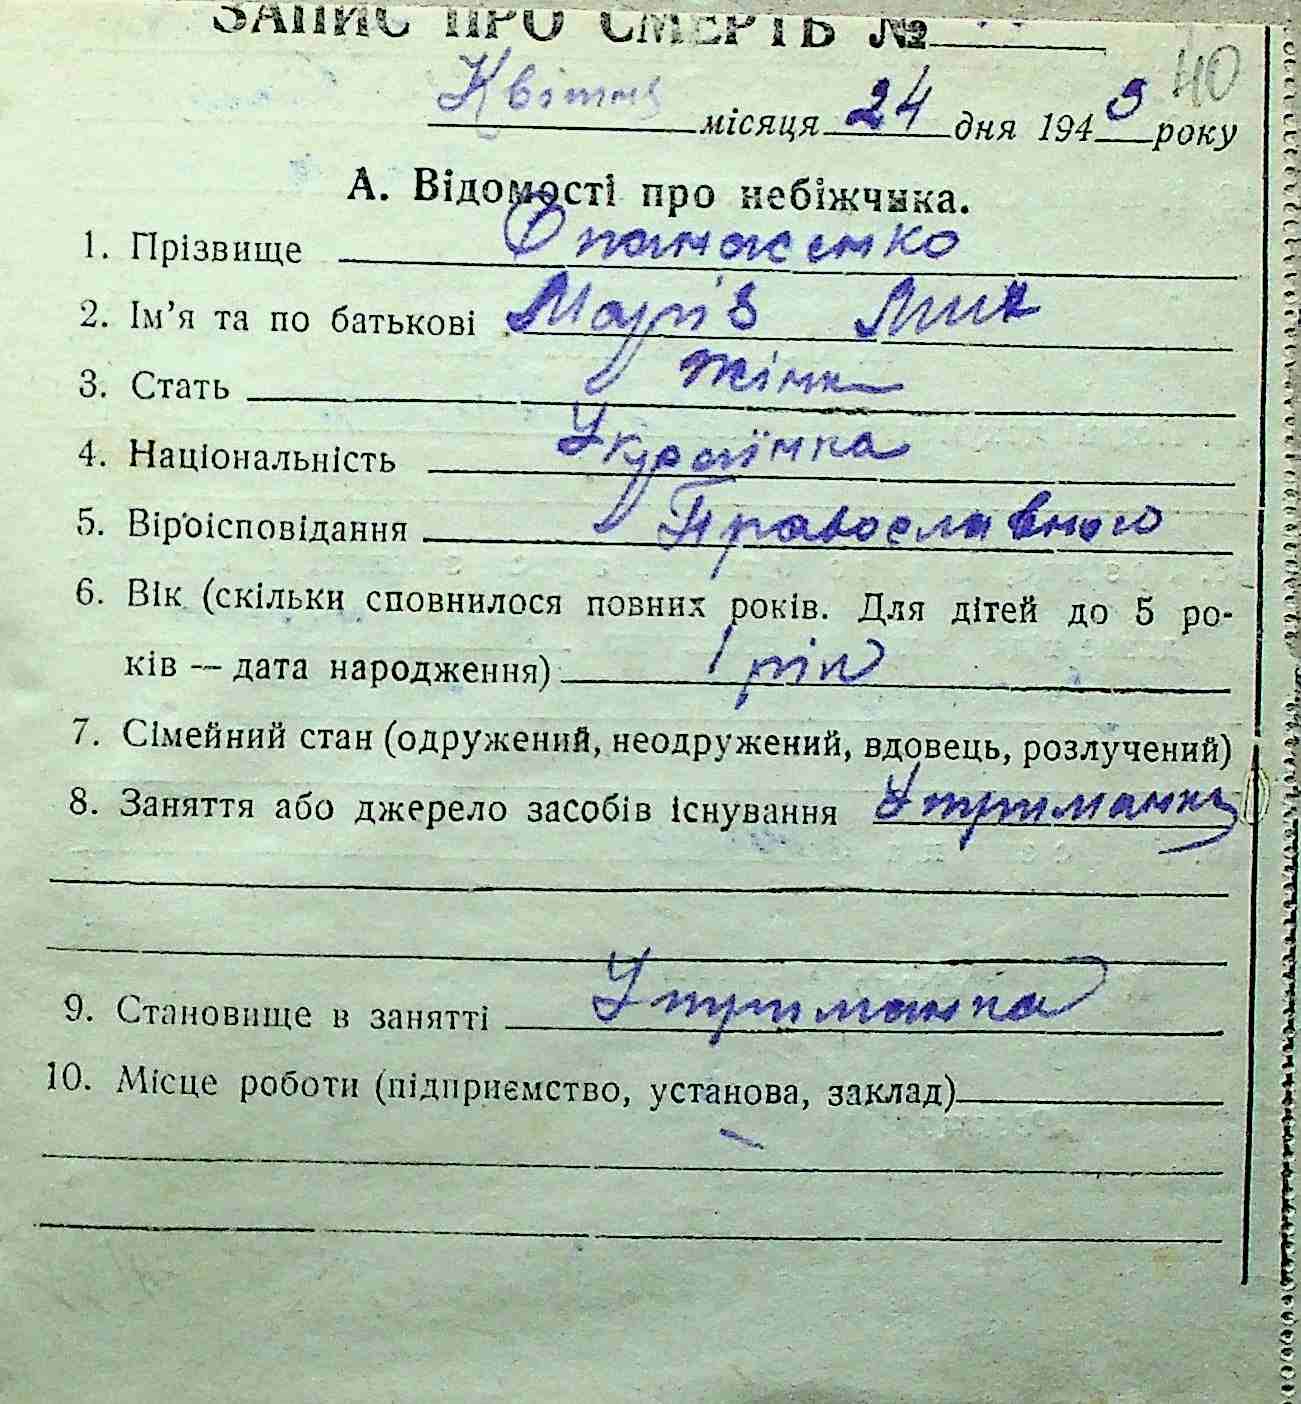 ЗАПИС ПРО СМЕРТЬ №
40
Квітня місяця 24 дня 1943 року
А. Відомості про небіжчика.
1. Прізвище Опанасенко
2. Ім'я та по батькові Марія Мик
3. Стать жінка
4. Національність Українка
5. Віроісповідання Православного
6. Вік (скільки сповнилося повних років. Для дітей до 5 ро-
ків — дата народження) 1 рік
7. Сімейний стан (одружений, неодружений, вдовець, розлучений)
8. Заняття або джерело засобів існування Утриманка
9. Становище в занятті Утриманка
10. Місце роботи (підприємство, установа, заклад)